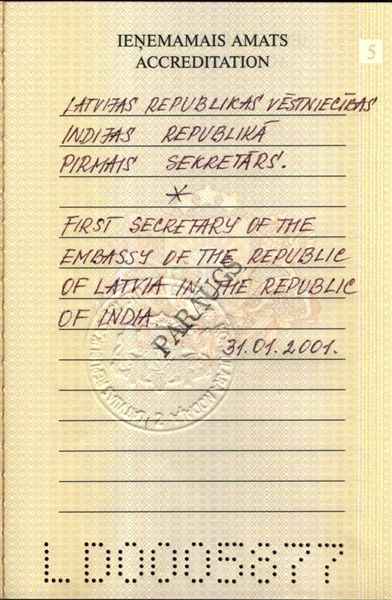 IEŅEMAMAIS AMATS
ACCREDITATION
5
LATVIJAS REPUBLIKAS VĒSTNIECĪBAS
INDIJAS REPUBLIKĀ
PIRMAIS SEKRETĀRS.
*
FIRST SECRETARY OF THE
EMBASSY OF THE REPUBLIC
OF LATVIA IN THE REPUBLIC
OF INDIA.
PARAUGS
31.01.2001.
LD0005877